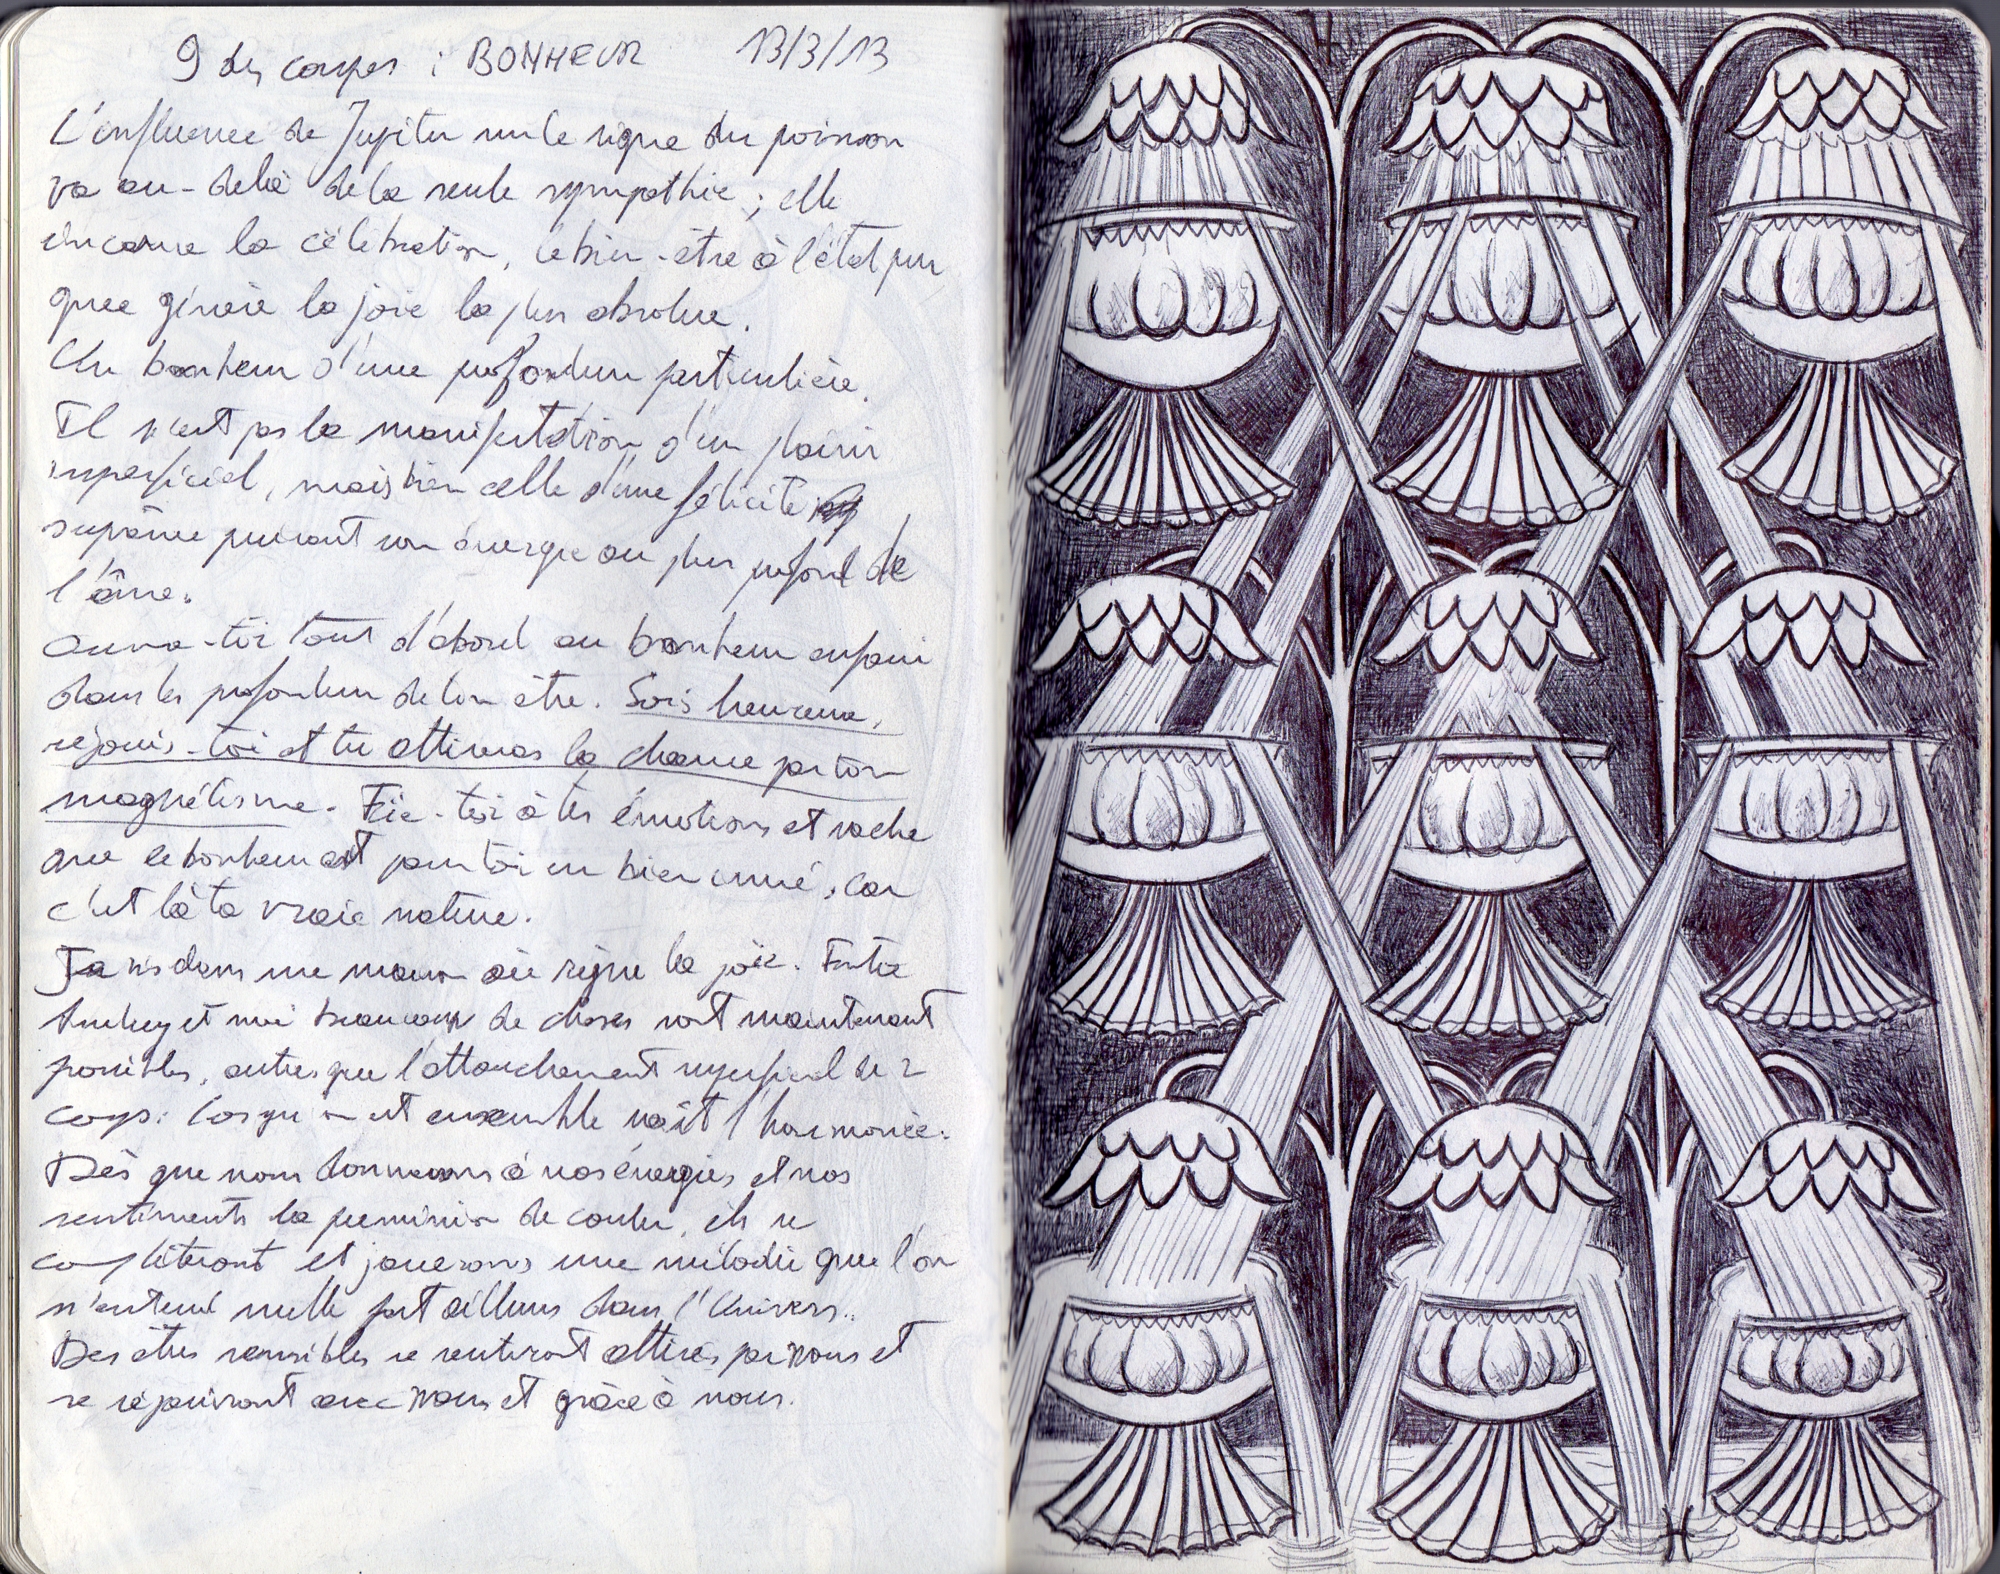 9 des coupes : BONHEUR 13/3/13
L'influence de Jupiter sur le signe du poisson
va au-delà de la seule sympathie ; elle
incarne la célébration, le bien-être à l'état pur
que génère la joie la plus absolue.
Un bonheur d'une profondeur particulière.
Il n'est pas la manifestation d'un plaisir
superficiel, mais bien celle d'une félicité
suprême puisant son énergie au plus profond de
l'âme.
Ouvre-toi tout d'abord au bonheur enfoui
dans les profondeurs de ton être. Sois heureuse,
réjouis-toi et tu attireras la chance par ton
magnétisme. Fie-toi à tes émotions et sache
que le bonheur est pour toi un bien inné, car
c'est là ta vraie nature.
Je vis dans une maison où règne la joie. Entre
et moi beaucoup de choses sont maintenant
possibles, autres que l'attachement superficiel de 2
corps : lorsqu'on est ensemble naît l'harmonie.
Dès que nous donnerons à nos énergies et nos
sentiments la permission de couler, ils se
complèteront et joueront une mélodie que l'on
n'entend nulle part ailleurs dans l'Univers.
Des êtres sensibles se sentiront attirés par nous et
se réjouiront avec nous et grâce à nous.